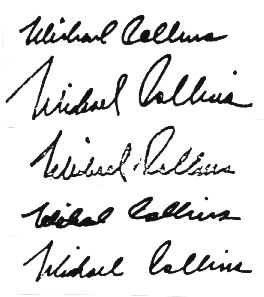 Michael Collins
Michael Collins
Michael Collins
Michael Collins
Michael Collins